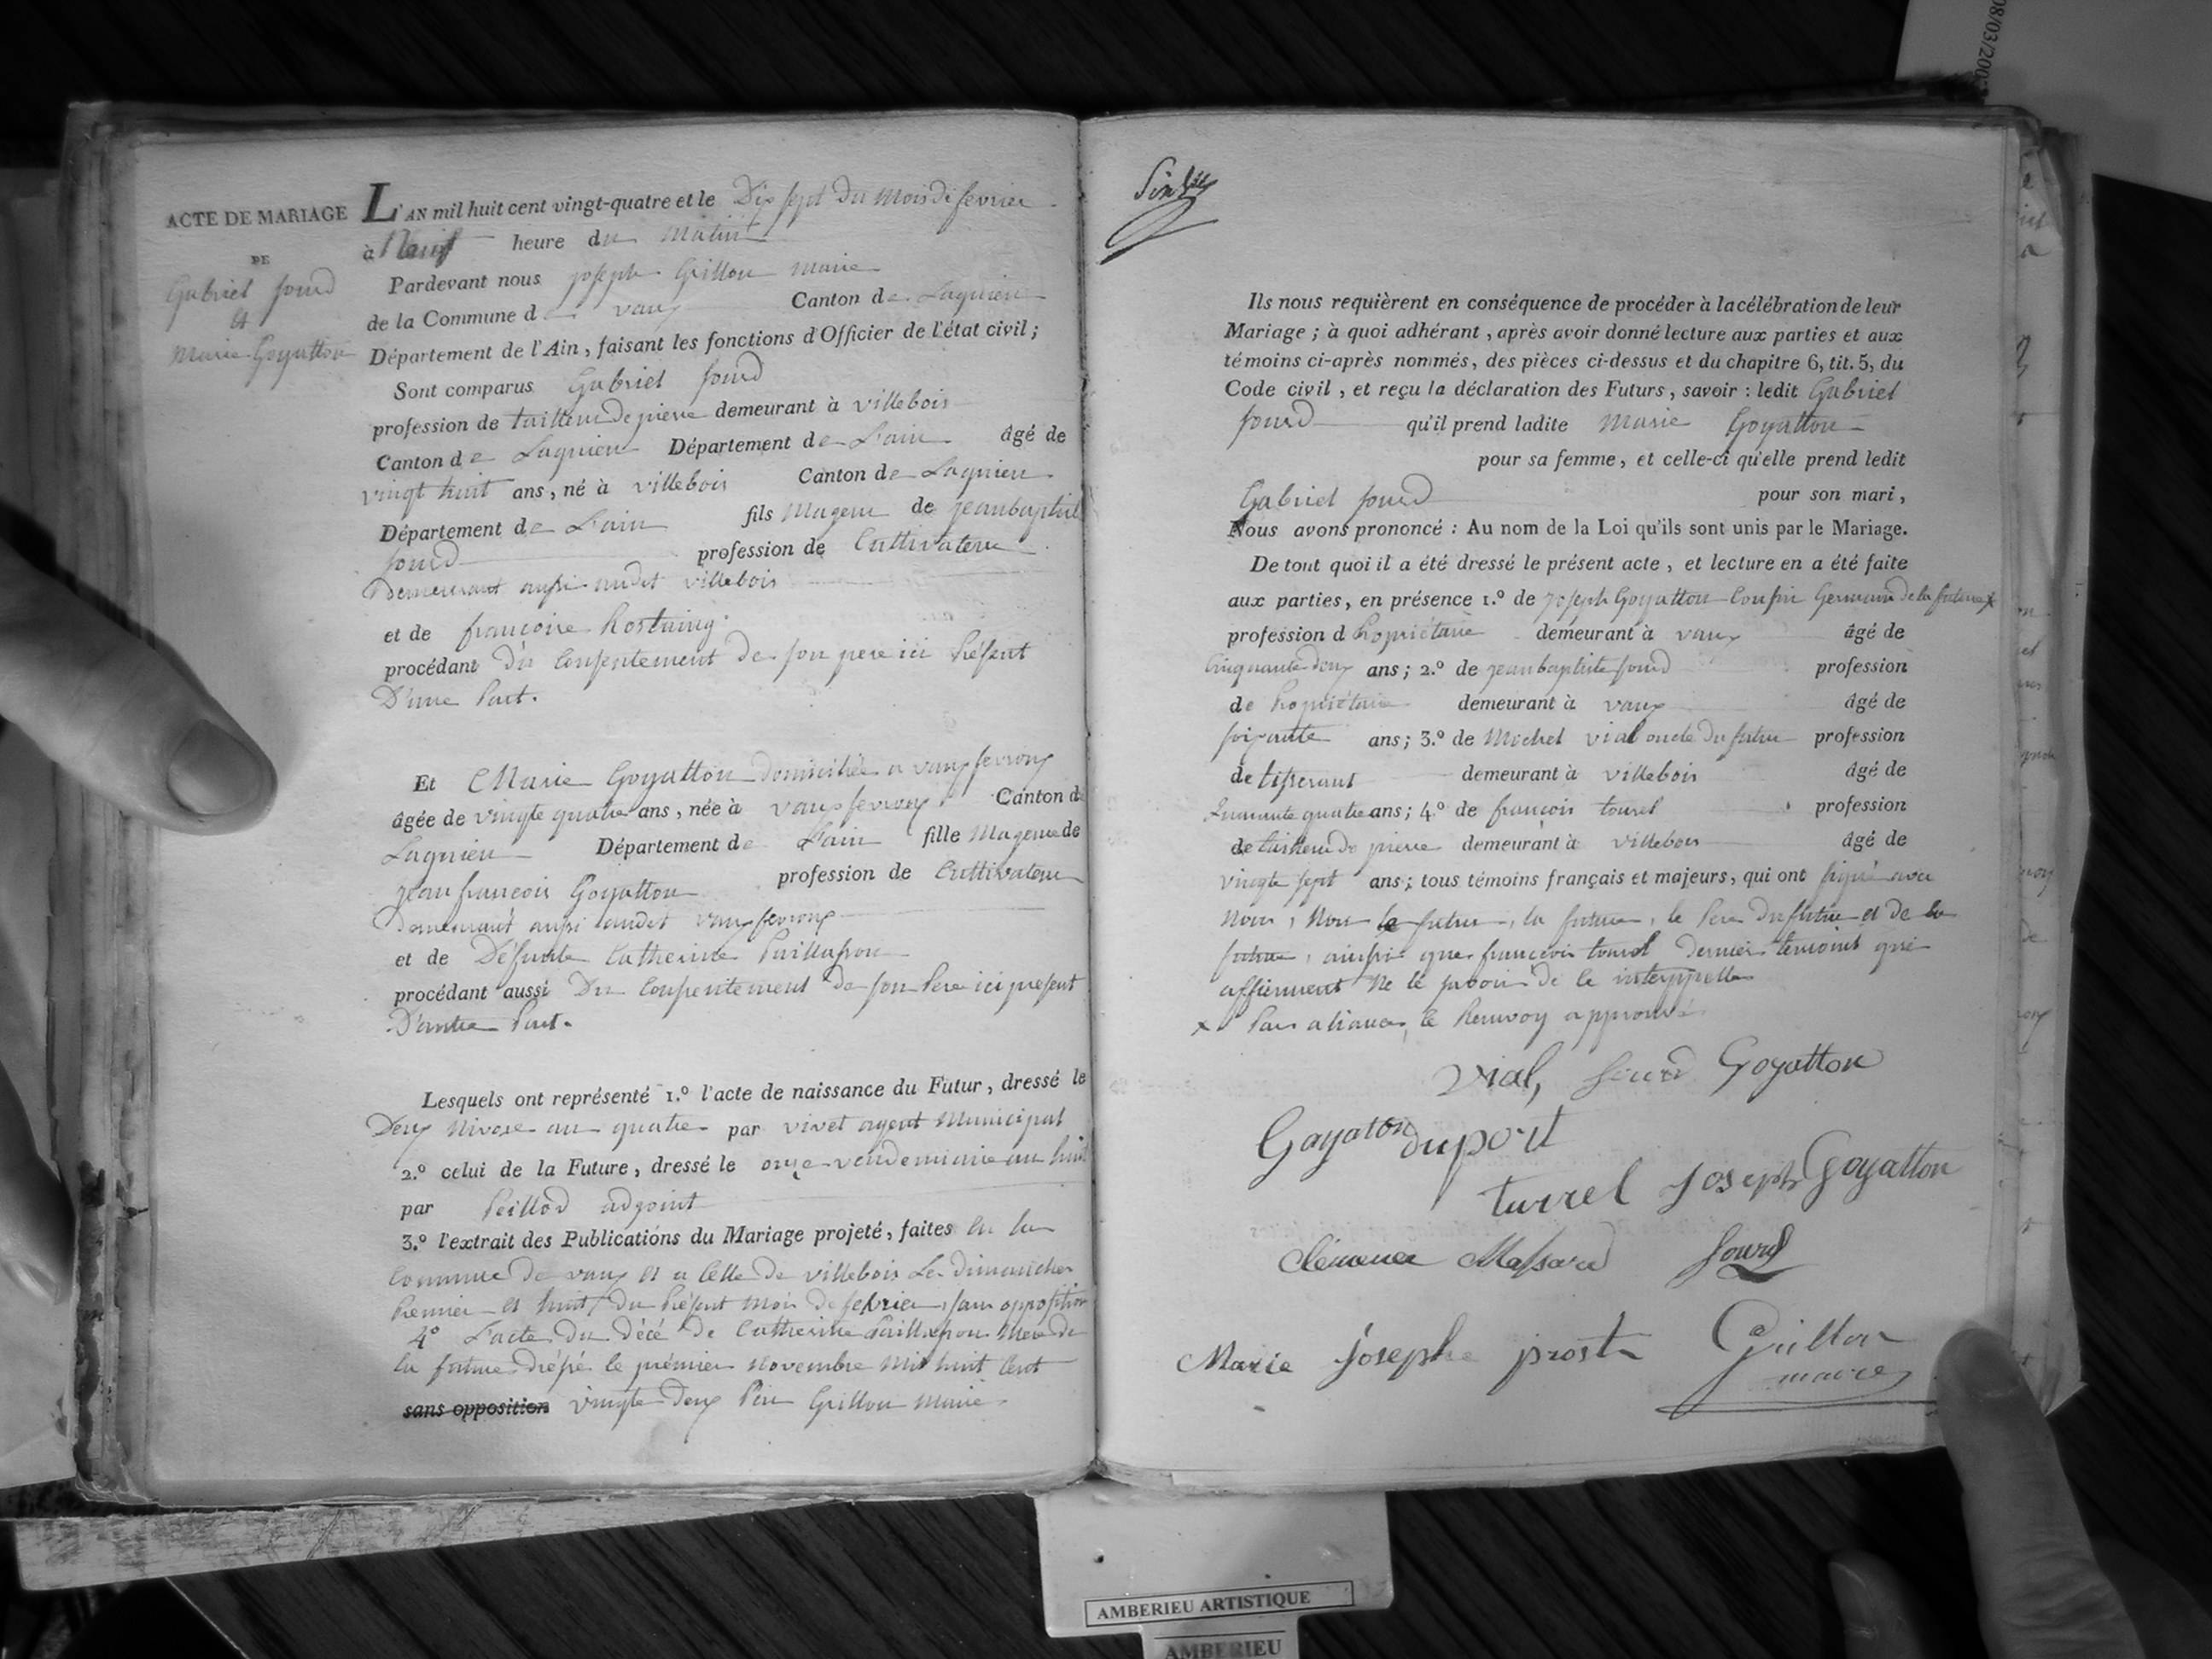 08/03/200
ACTE DE MARIAGE
DE
Gabriel sourd
et
Marie Goyatton
L'AN mil huit cent vingt-quatre et le Dix sept du mois de fevrier
à Neuf heure du Matin
Pardevant nous joseph Grillon maire
de la Commune de vaux Canton de Lagnieu
Département de l'Ain, faisant les fonctions d'Officier de l'état civil;
Sont comparus Gabriel sourd
profession de tailleur de pierre demeurant à villebois
Canton de Lagnieu Département de L'ain âgé de
vingt huit ans, né à villebois Canton de Lagnieu
Département de L'ain fils Mageur de jean baptiste
sourd profession de Cultivateur
Demeurant aussi audit villebois
et de françoise Rostaing
procédant du Consentement de son pere ici Présent
D'une Part.
Et Marie Goyatton domiciliée a vaux fevroux
âgée de vingte quatre ans, née à vaux fevroux Canton de
Lagnieu Département de L'ain fille Mageure de
jean francois Goyatton profession de Cultivateur
Demeurant aussi audit vaux fevroux
et de Défunte Catherine Paillasson
procédant aussi Du Consentement de son Pere ici present
D'autre Part.
Lesquels ont représenté 1.º l'acte de naissance du Futur, dressé le
Deux Nivose an quatre par vivet agent Municipal
2.º celui de la Future, dressé le onze vendemiaire an huit
par Peillod adjoint
3.º l'extrait des Publications du Mariage projeté, faites en la
Commune de vaux et a Celle de villebois Les dimanches
Premier et huit du Présent mois de fevrier, sans opposition
4º L'acte du décé de Catherine Paillasson Mere de
la future drépé le prémier Novembre Mil huit Cent
sans opposition vingte Deux Par Grillon Maire
Ils nous requièrent en conséquence de procéder à la célébration de leur
Mariage; à quoi adhérant, après avoir donné lecture aux parties et aux
témoins ci-après nommés, des pièces ci-dessus et du chapitre 6, tit. 5, du
Code civil, et reçu la déclaration des Futurs, savoir : ledit Gabriel
sourd qu'il prend ladite Marie Goyatton
pour sa femme, et celle-ci qu'elle prend ledit
Gabriel sourd pour son mari,
Nous avons prononcé : Au nom de la Loi qu'ils sont unis par le Mariage.
De tout quoi il a été dressé le présent acte, et lecture en a été faite
aux parties, en présence 1.º de joseph Goyatton Cousin Germain de la future x
profession d Propriétaire demeurant à vaux âgé de
Cinquante Deux ans; 2.º de jean baptiste sourd profession
de Propriétaire demeurant à vaux âgé de
soixante ans; 3.º de Michel vial oncle du futur profession
de tisserant demeurant à villebois âgé de
quarante quatre ans; 4.º de françois tourel profession
de tailleur de pierre demeurant à villebois âgé de
vingte sept ans; tous témoins français et majeurs, qui ont signé avec
Nous, Non le futur, la future, le Pere du futur et de la
future, ainsi que françois tourel Dernier temoins qui
affirment Ne le savoir de ce interppellés
x Par aliance, le Renvoy approuvé
vial, sourd Goyatton
Goyaton duport
turrel Joseph Goyatton
Clémence Massard sourd
Marie Josephe prost Grillon
maire
AMBERIEU ARTISTIQUE
AMBERIEU